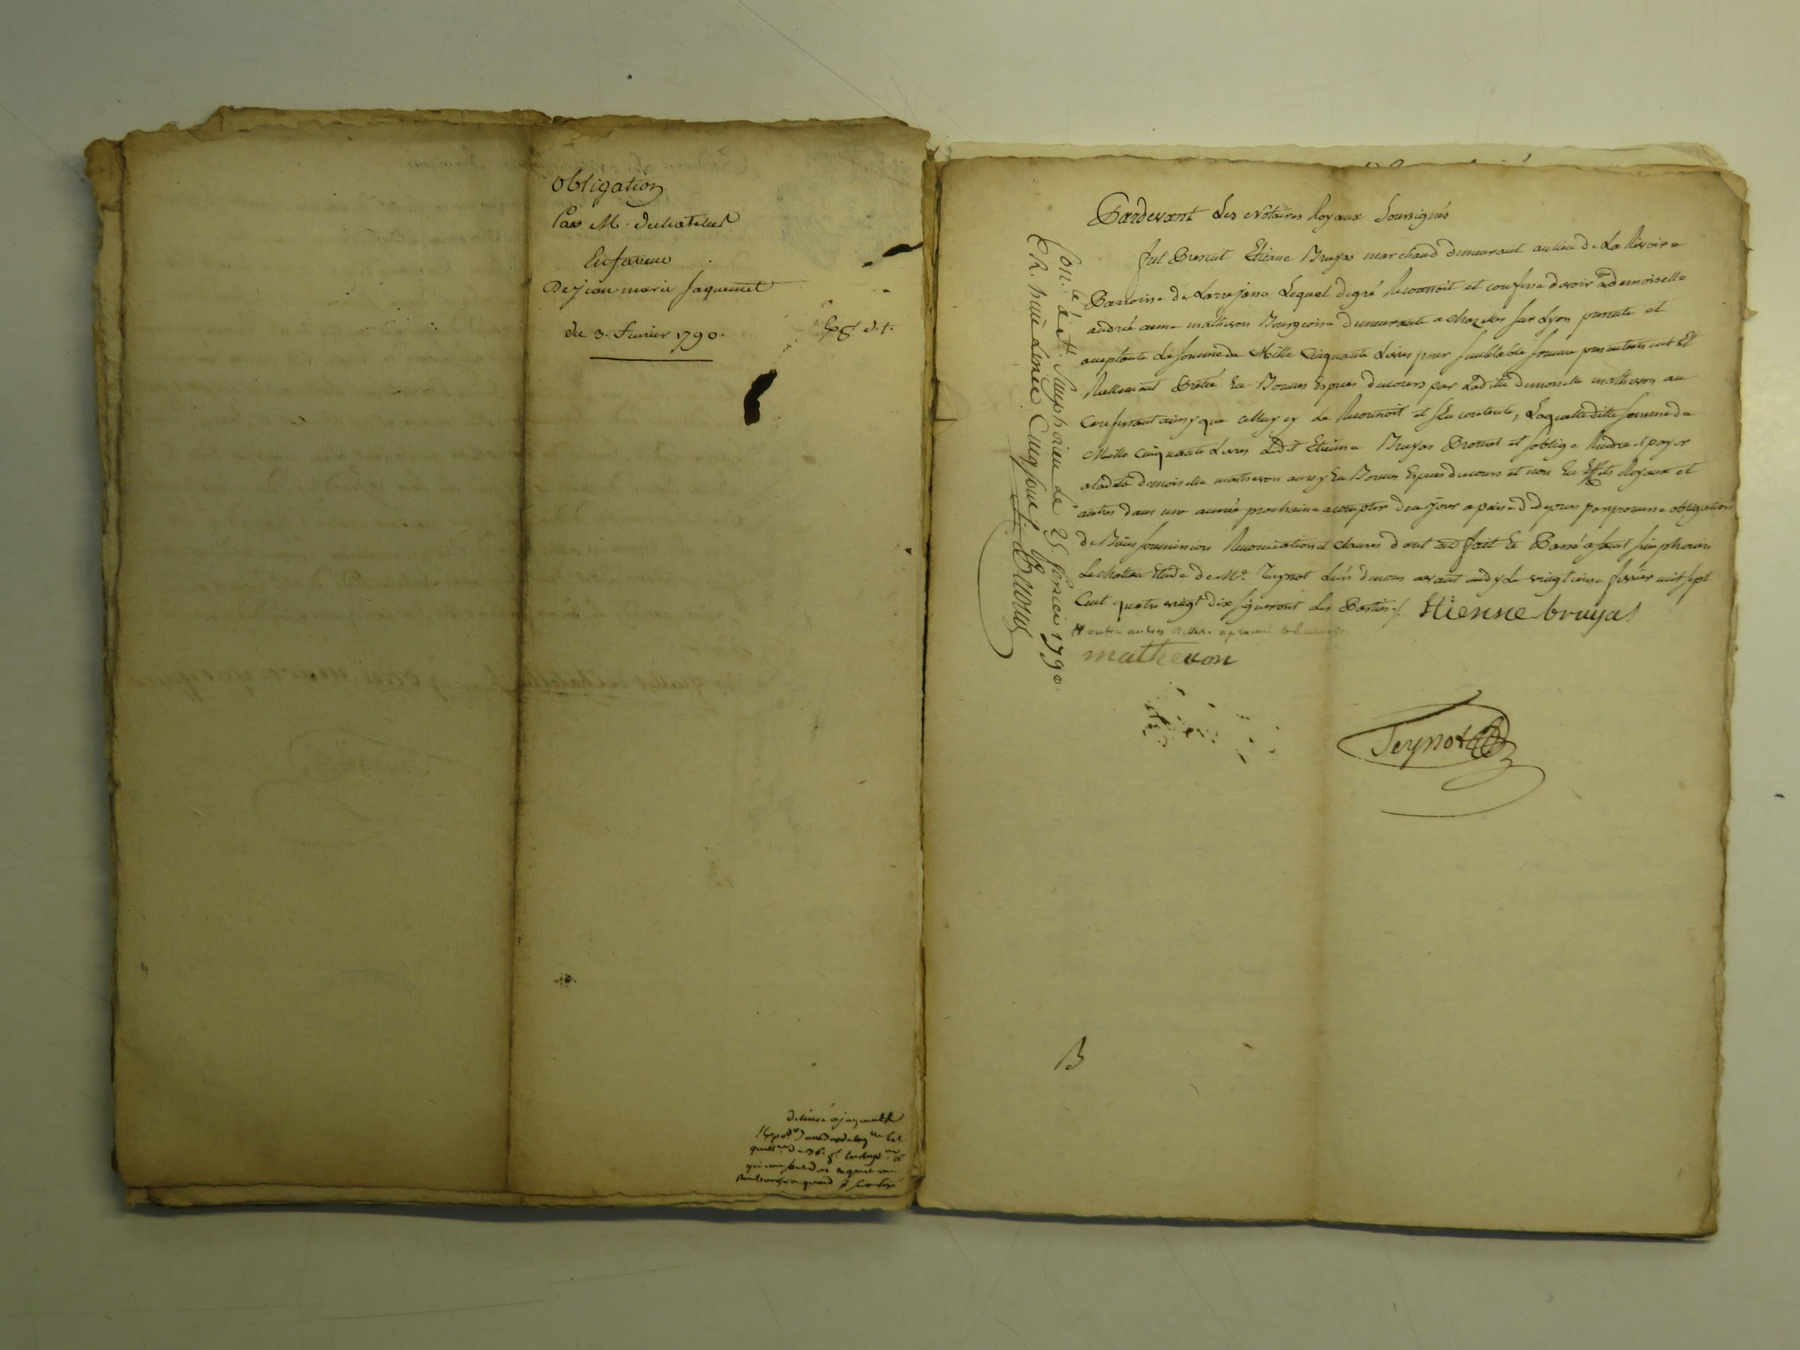 Obligation
Par M. Duchatelus
En faveur
De jean marie jaquemet
du 3. fevrier 1790.
Pardevant Les Notaires Royaux Soussignés
fut Present Etienne Bruyas marchand demeurant au lieu de La Rivoire
Parroisse de Larajasse Lequel de gré Reconnoit et confesse devoir a demoiselle
andrée anne mathevon Bourgeoise demeurante a chazelles sur Lyon presente et
acceptante La somme de Mille Cinquante Livres pour semblable somme presentement et
Reellement Pretée En Bonnes Especes de cours par Ladite demoiselle mathevon au
Confessant ainsy que celluy cy Le Reconnoit et s'En contente, Laquelle ditte somme de
Mille Cinquante Livres Ledit Etienne Bruyas Promet et s'oblige Rendre et payer
a ladite demoiselle mathevon aussy En Bonnes Especes de cours et non En Effets Royaux et
autres dans une année prochaine a compter de ce jour a peine de depens par promesse obligation
de Biens soumissions Renonciations et clauses dont acte fait et Passé a saint simphorien
Le chateau Etude de Me. Teynot L'un de nous avant midy Le vingt fevrier mil sept
Cent quatre vingt dix signeront Les Parties. Etienne bruyas
mathevon
Teynot
Con.lé à St. Simphorien le 25 fevrier 1790.
R. huit Livres Cinq sous
B